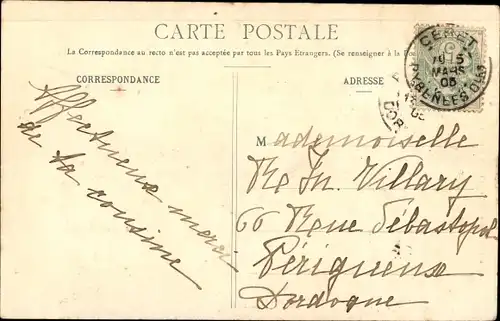 CARTE POSTALE
La Correspondance au recto n'est pas acceptée par tous les Pays Etrangers. (Se renseigner à la
CORRESPONDANCE
ADRESSE
CERET
MARS
PYRENEES
DOR
Affectueux merci
de ta cousine
Mademoiselle
Villary
66 Rue Sébastopol
Périgueux
Dordogne